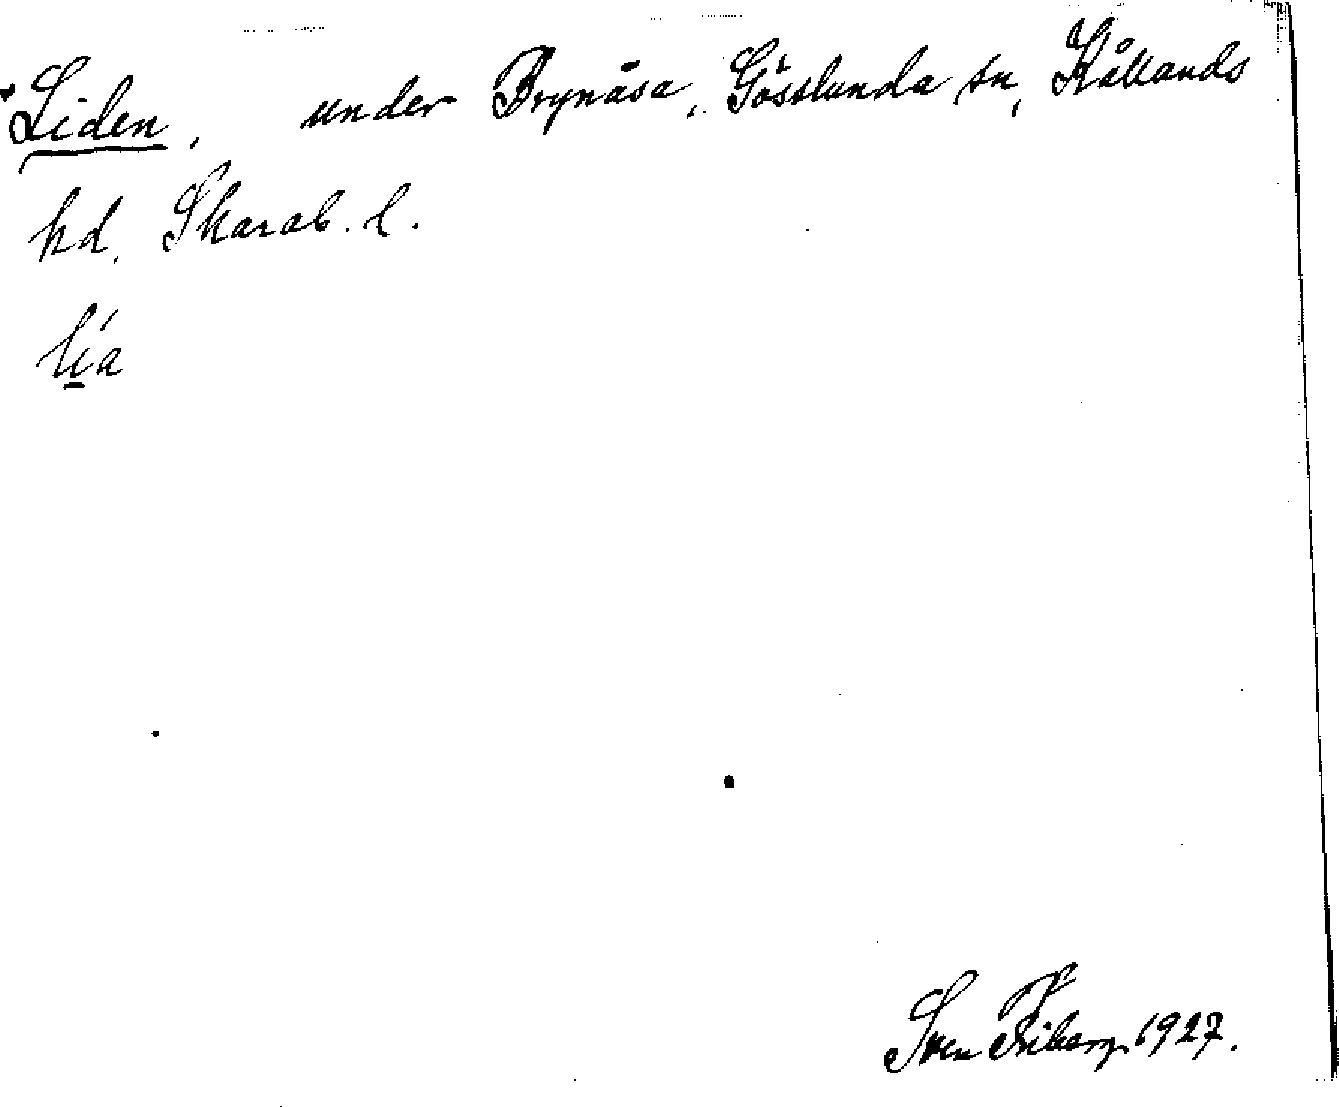 *Liden, under Brynåsa, Gösslunda sn, Kållands
hd. Skarab. l.
lía
Sven Friberg 1927.